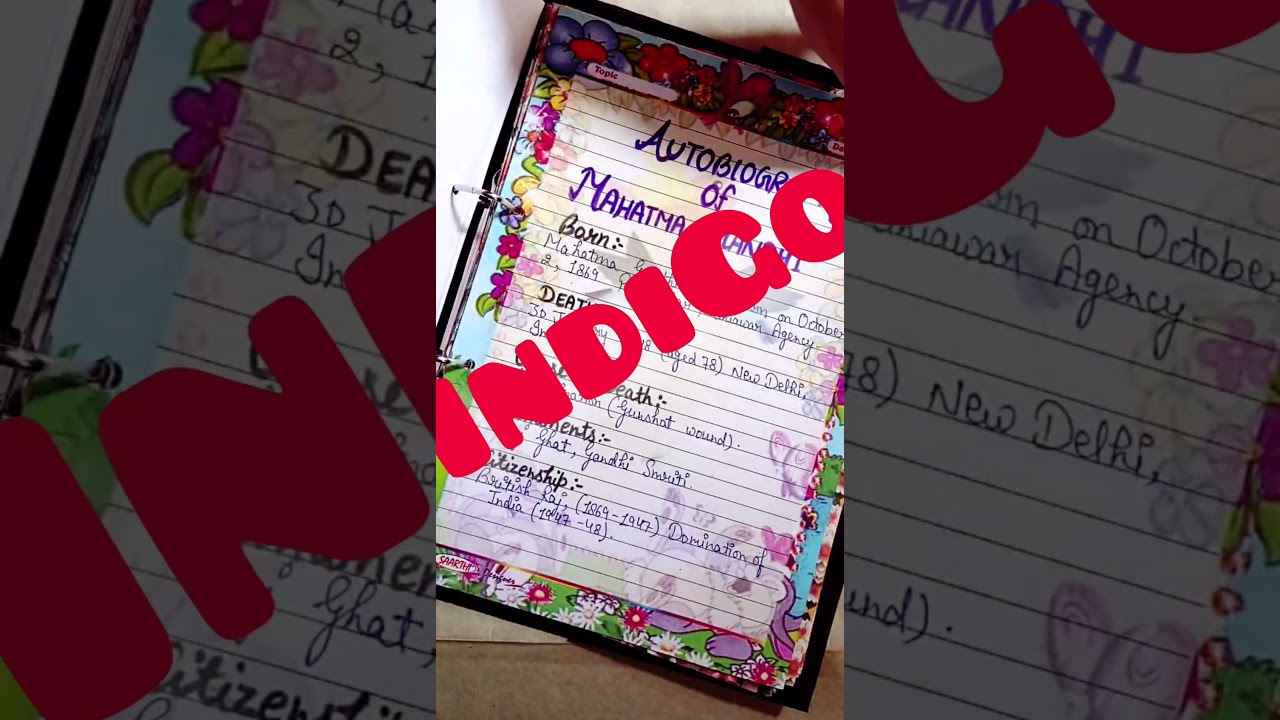 Topic
AUTOBIOGR
Of
MAHATMA
INDIGO
Born:-
Mahatma on October
2, 1869 Agency
DEAT
30 (aged 78) New Delhi,
In
eath:-
(Gunshot wound).
ments:-
Ghat, Gandhi Smriti
Citizenship:-
British Raj, (1869-1947) Domination of
India (1947-48).
SAARTHI's Designer